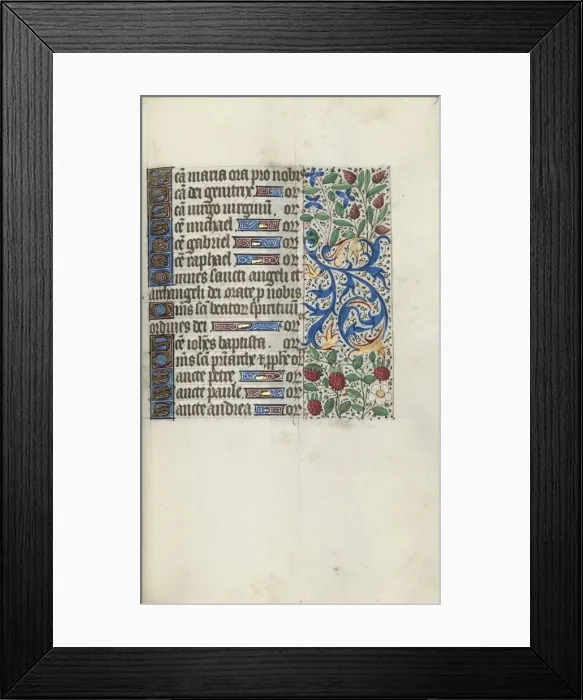 Sca̅ maria ora pro nobis
Sca̅ dei genitrix or
Sca̅ virgo virginu̅. or
Sce̅ michael or
Sce̅ gabriel or
Sce̅ raphael or
Omnes sancti angeli et
archangeli dei orate p nobis
Om̅s sc̅i beator̅ spirituu̅
ordines dei or
Sce̅ ioh̅es baptista. or
Om̅s sc̅i pr̅iarche et or
Sancte petre or
Sancte paule or
Sancte andrea or